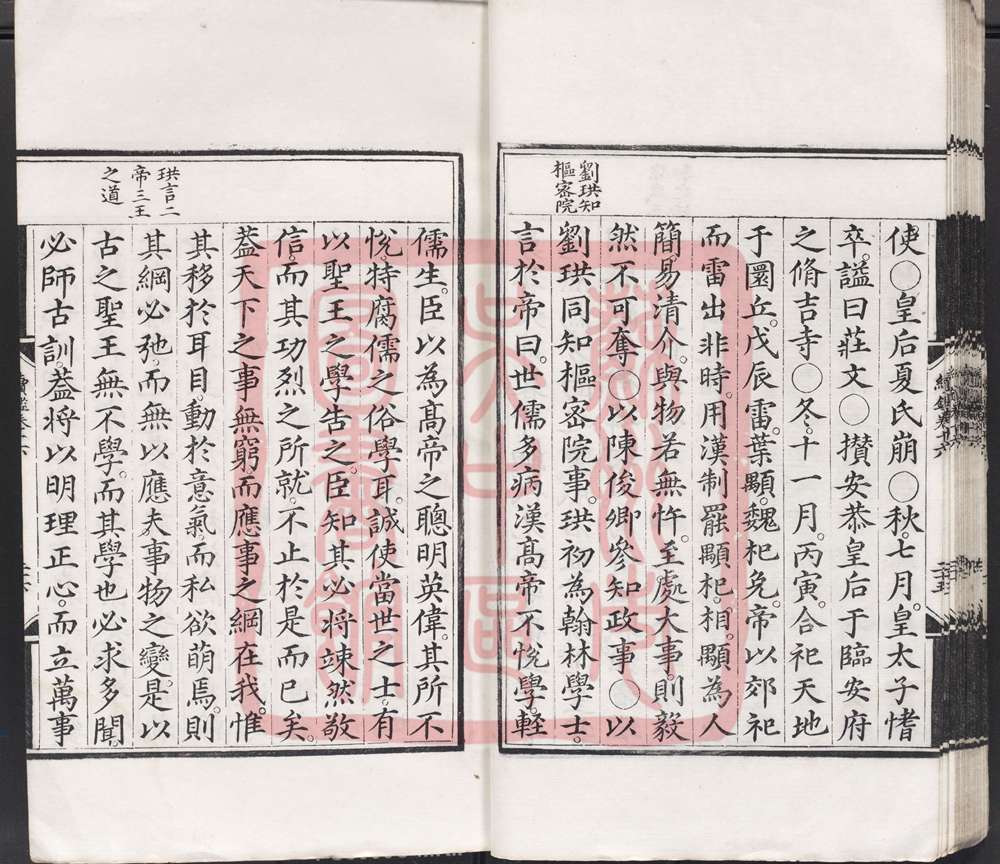 劉珙知
樞密院
使〇皇后夏氏崩〇秋。七月。皇太子愭
卒。諡曰莊文〇攅安恭皇后于臨安府
之脩吉寺〇冬。十一月。丙寅。合祀天地
于圜丘。戊辰。雷。葉顒。魏杞免。帝以郊祀
而雷出非時。用漢制罷顒杞。相。顒為人
簡易清介。與物若無忤。至處大事。則毅
然不可奪〇以陳俊卿參知政事〇以
劉珙同知樞密院事。珙初為翰林學士。
言於帝曰。世儒多病漢高帝不悅學。輕
珙言二
帝三王
之道
儒生。臣以為高帝之聰明英偉。其所不
悅。特腐儒之俗學耳。誠使當世之士。有
以聖王之學告之。臣知其必將竦然敬
信。而其功烈之所就。不止於是而已矣。
葢天下之事無窮。而應事之綱在我。惟
其移於耳目。動於意氣。而私欲萌焉。則
其綱必弛。而無以應夫事物之變。是以
古之聖王無不學。而其學也必求多聞。
必師古訓。葢將以明理正心。而立萬事